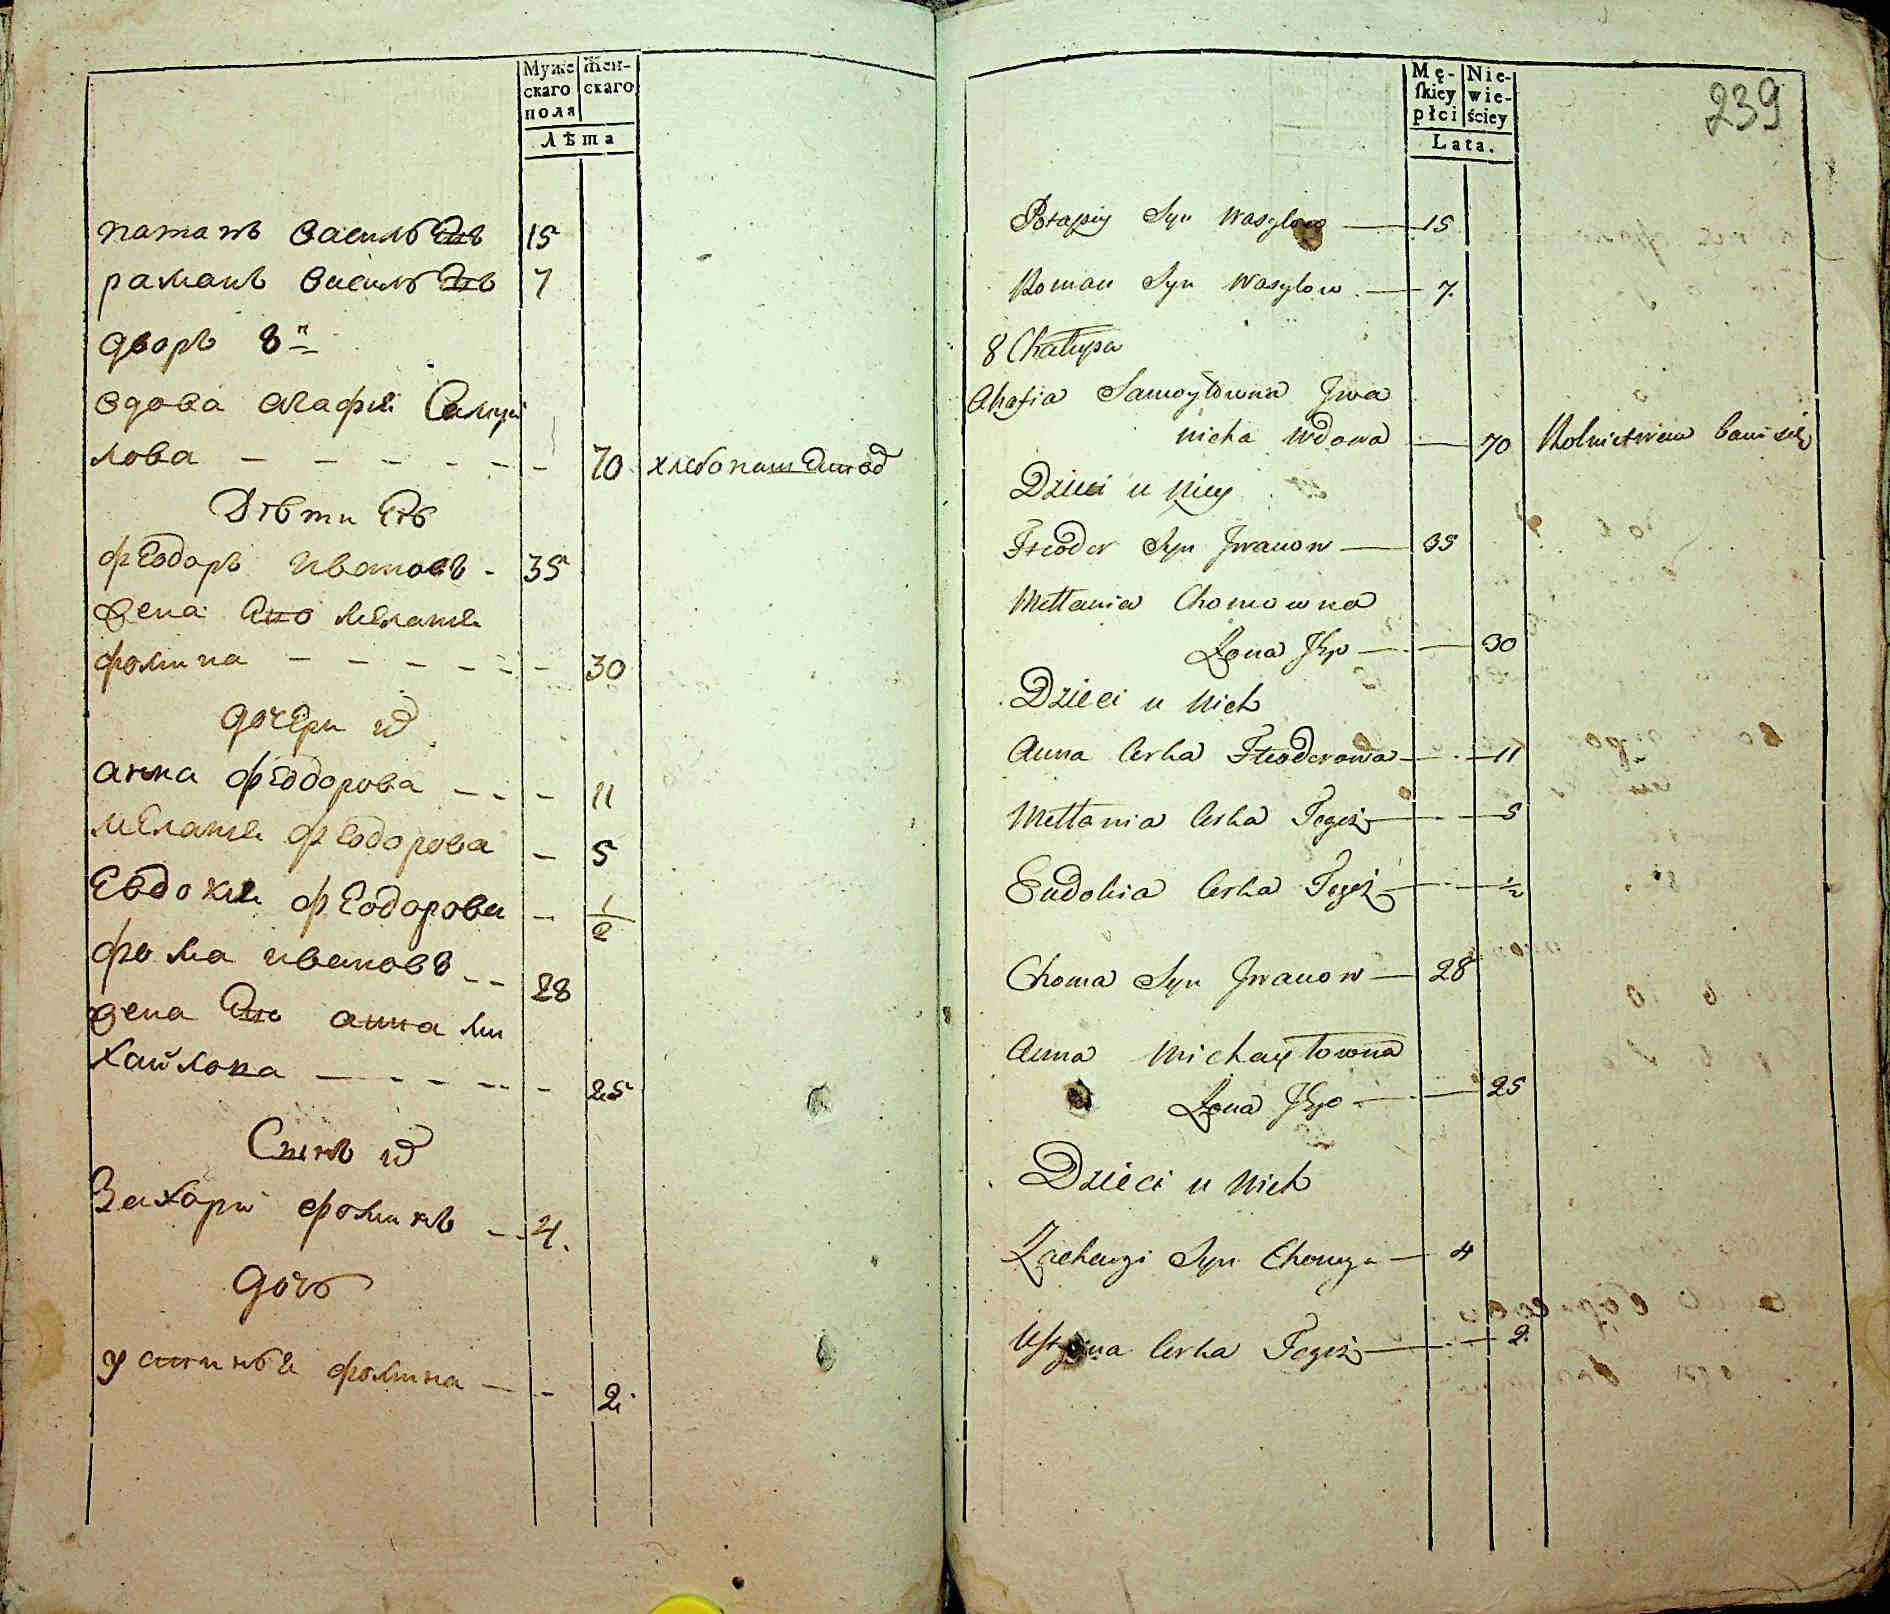 Муже
скаго
поля
Жен-
скаго
Лѣта
патапъ василь евъ 15
раманъ василь евъ 7
дворъ 8 й
вдова агафия Самуй
лова - - - - - - 70 хлебопашеством
Дѣти Её
феодоръ ивановъ - 35
жена его меланія
фомина - - - - - 30
дочери их
анна феодорова - - - 11
меланія феодорова - 5
Евдокия феодорова - 1/2
фома ивановъ - - 28
жена Его анна ми
хайлова - - - - - 25
Сынъ их
Захари фоминъ - - 4.
дочь
устинья фомина - - 2.
Mę-
ſkiey
płci
Nie-
wie-
ściey
Lata.
239
Potapiy Syn Wasylow — 15
Roman Syn Wasylow — 7.
8 Chałupa
Ahafia Samoyłowna Jwa
nicha Wdowa — 70 Rolnictwem bawi się
Dzieci u Niey
Fteodor Syn Jwanow — 35
Mełania Chomowna
Żona Jego — 30
Dzieci u Nich
Anna Corka Fteodorowa — 11
Mełania Corka Tegoż — 5
Eudokia Corka Tegoż — 1/2
Choma Syn Jwanow — 28
Anna Michayłowna
Żona Jego — 25
Dzieci u Nich
Zacharyi Syn Chomy — 4
Ustyina Corka Tegoż — 2.